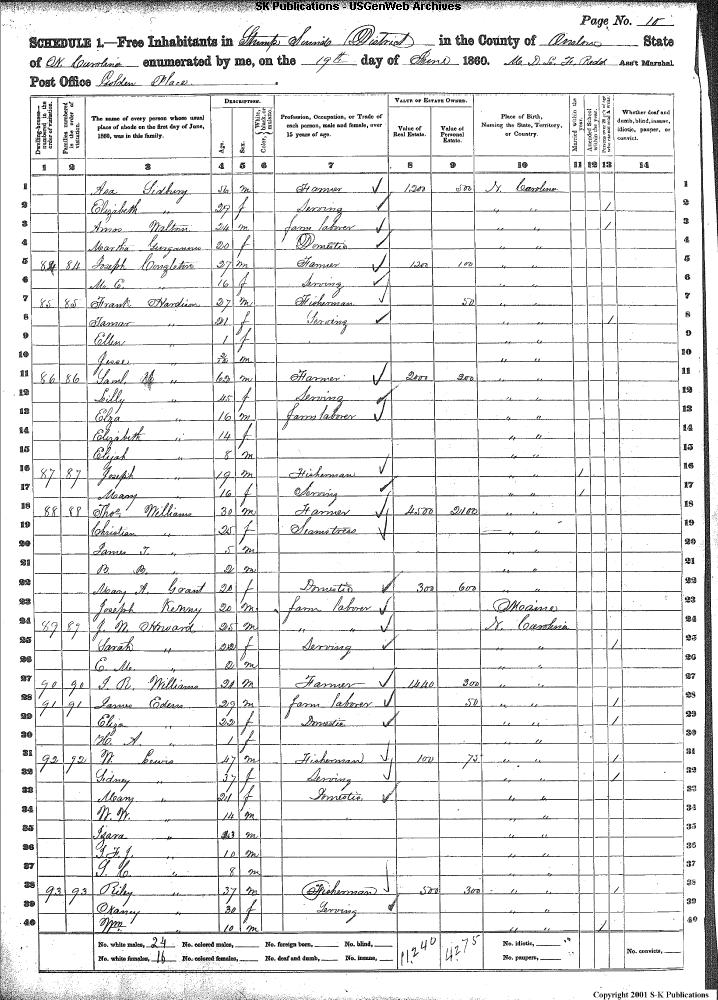 SK Publications - USGenWeb Archives
Page No. 10
SCHEDULE 1.—Free Inhabitants in Stump Sound District in the County of Onslow State
of N. Carolina enumerated by me, on the 19th day of June 1860. Ass't Marshal
Post Office Golden Place
DESCRIPTION. VALUE OF ESTATE OWNED.
Dwelling-houses—numbered in the order of visitation.
Families numbered in the order of visitation.
The name of every person whose usual place of abode on the first day of June, 1860, was in this family.
Age.
Sex.
Color, White, black, or mulatto.
Profession, Occupation, or Trade of each person, male and female, over 15 years of age.
Value of Real Estate.
Value of Personal Estate.
Place of Birth, Naming the State, Territory, or Country.
Married within the year.
Attended School within the year.
Whether deaf and dumb, blind, insane, idiotic, pauper, or convict.
1 2 3 4 5 6 7 8 9 10 11 12 13 14
1 Asa Sidbury 56 m Farmer 1200 500 N. Carolina 1
2 Elizabeth " 29 f Serving " " / 2
3 Amos Walton 24 m farm laborer " " / 3
4 Martha Gurganus 20 f Domestic " " 4
5 84 84 Joseph Congleton 27 m Farmer 1200 100 " " 5
6 M. E. " 16 f Serving " " 6
7 85 85 Frank Hardison 27 m Fisherman 50 " " 7
8 Tamar " 21 f Serving " " / 8
9 Ellen " 1 f " " 9
10 Jesse " m " " 10
11 86 86 Saml. " 62 m Farmer 2000 200 " " 11
12 Lilly " 45 f Serving " " 12
13 Elza " 16 m farm laborer " " 13
14 Elizabeth " 14 f " " 14
15 Elijah " 8 m " " 15
16 87 87 Joseph " 19 m Fisherman " " / 16
17 Mary " 16 f Serving " " / 17
18 88 88 Thos. Williams 30 m Farmer 4500 2100 " " 18
19 Christian " 25 f Seamstress " " 19
20 James T. " 5 m " " 20
21 B. B. " 2 m " " 21
22 Mary A. Grant 20 f Domestic 300 600 " " 22
23 Joseph Kenny 20 m farm laborer Maine 23
24 89 89 J. W. Howard 25 m " " N. Carolina 24
25 Sarah " 22 f Serving " " / 25
26 E. M. " 2 m " " 26
27 90 90 J. R. Williams 21 m Farmer 1440 300 " " 27
28 91 91 James Edens 29 m farm laborer 50 " " / 28
29 Eliza " 22 f Domestic " " / 29
30 H. A. " 1 f " " 30
31 92 92 W. Lewis 47 m Fisherman 100 75 " " / 31
32 Sidney " 37 f Serving " " / 32
33 Mary " 21 f Domestic " " 33
34 W. W. " 14 m " " 34
35 " 13 m " " 35
36 J. F. J. " 10 m " " 36
37 " 8 m " " 37
38 93 93 Riley " 37 m Fisherman 500 300 " " / 38
39 " 30 f Serving " " 39
40 Wm. " 10 m " " / 40
No. white males, 24 No. colored males, No. foreign born, No. blind, 11240 4275 No. idiotic, No. convicts,
No. white females, 16 No. colored females, No. deaf and dumb, No. insane, No. paupers,
Copyright 2001 S-K Publications